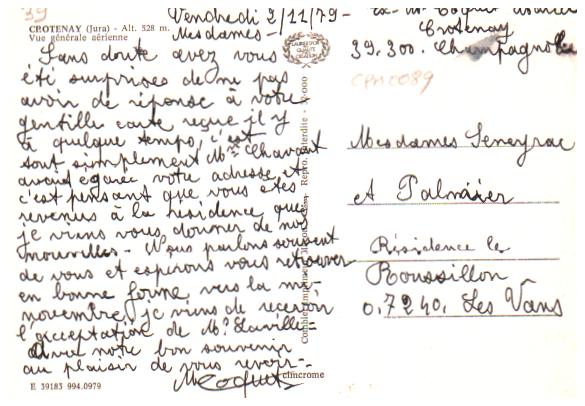 39
CROTENAY (Jura) - Alt. 528 m.
Vue générale aérienne
Vendredi 2/11/79 -
Mesdames -
Sans doute avez vous
été surprises de ne pas
avoir de réponse à votre
gentille carte reçue il y
à quelque temps, c'est
tout simplement Me Chavant
avait égaré votre adresse et
c'est pensant que vous êtes
revenus à la résidence que
je viens vous donner de nos
nouvelles - Nous parlons souvent
de vous et espérons vous retrouver
en bonne forme vers la mi-
novembre, je viens de recevoir
l'acceptation de Me Laville -
Avec notre bon souvenir
au plaisir de vous revoir -
M Coquet
E 39183 994.0979
Combier imprimeur Mâcon
Repro. interdite
cimcrome
Ex- Mr Coquet
Crotenay
39.300. Champagnole
CPM 0089
Mesdames Seneyrac
et Palmier
Résidence le
Roussillon
0.7240. Les Vans